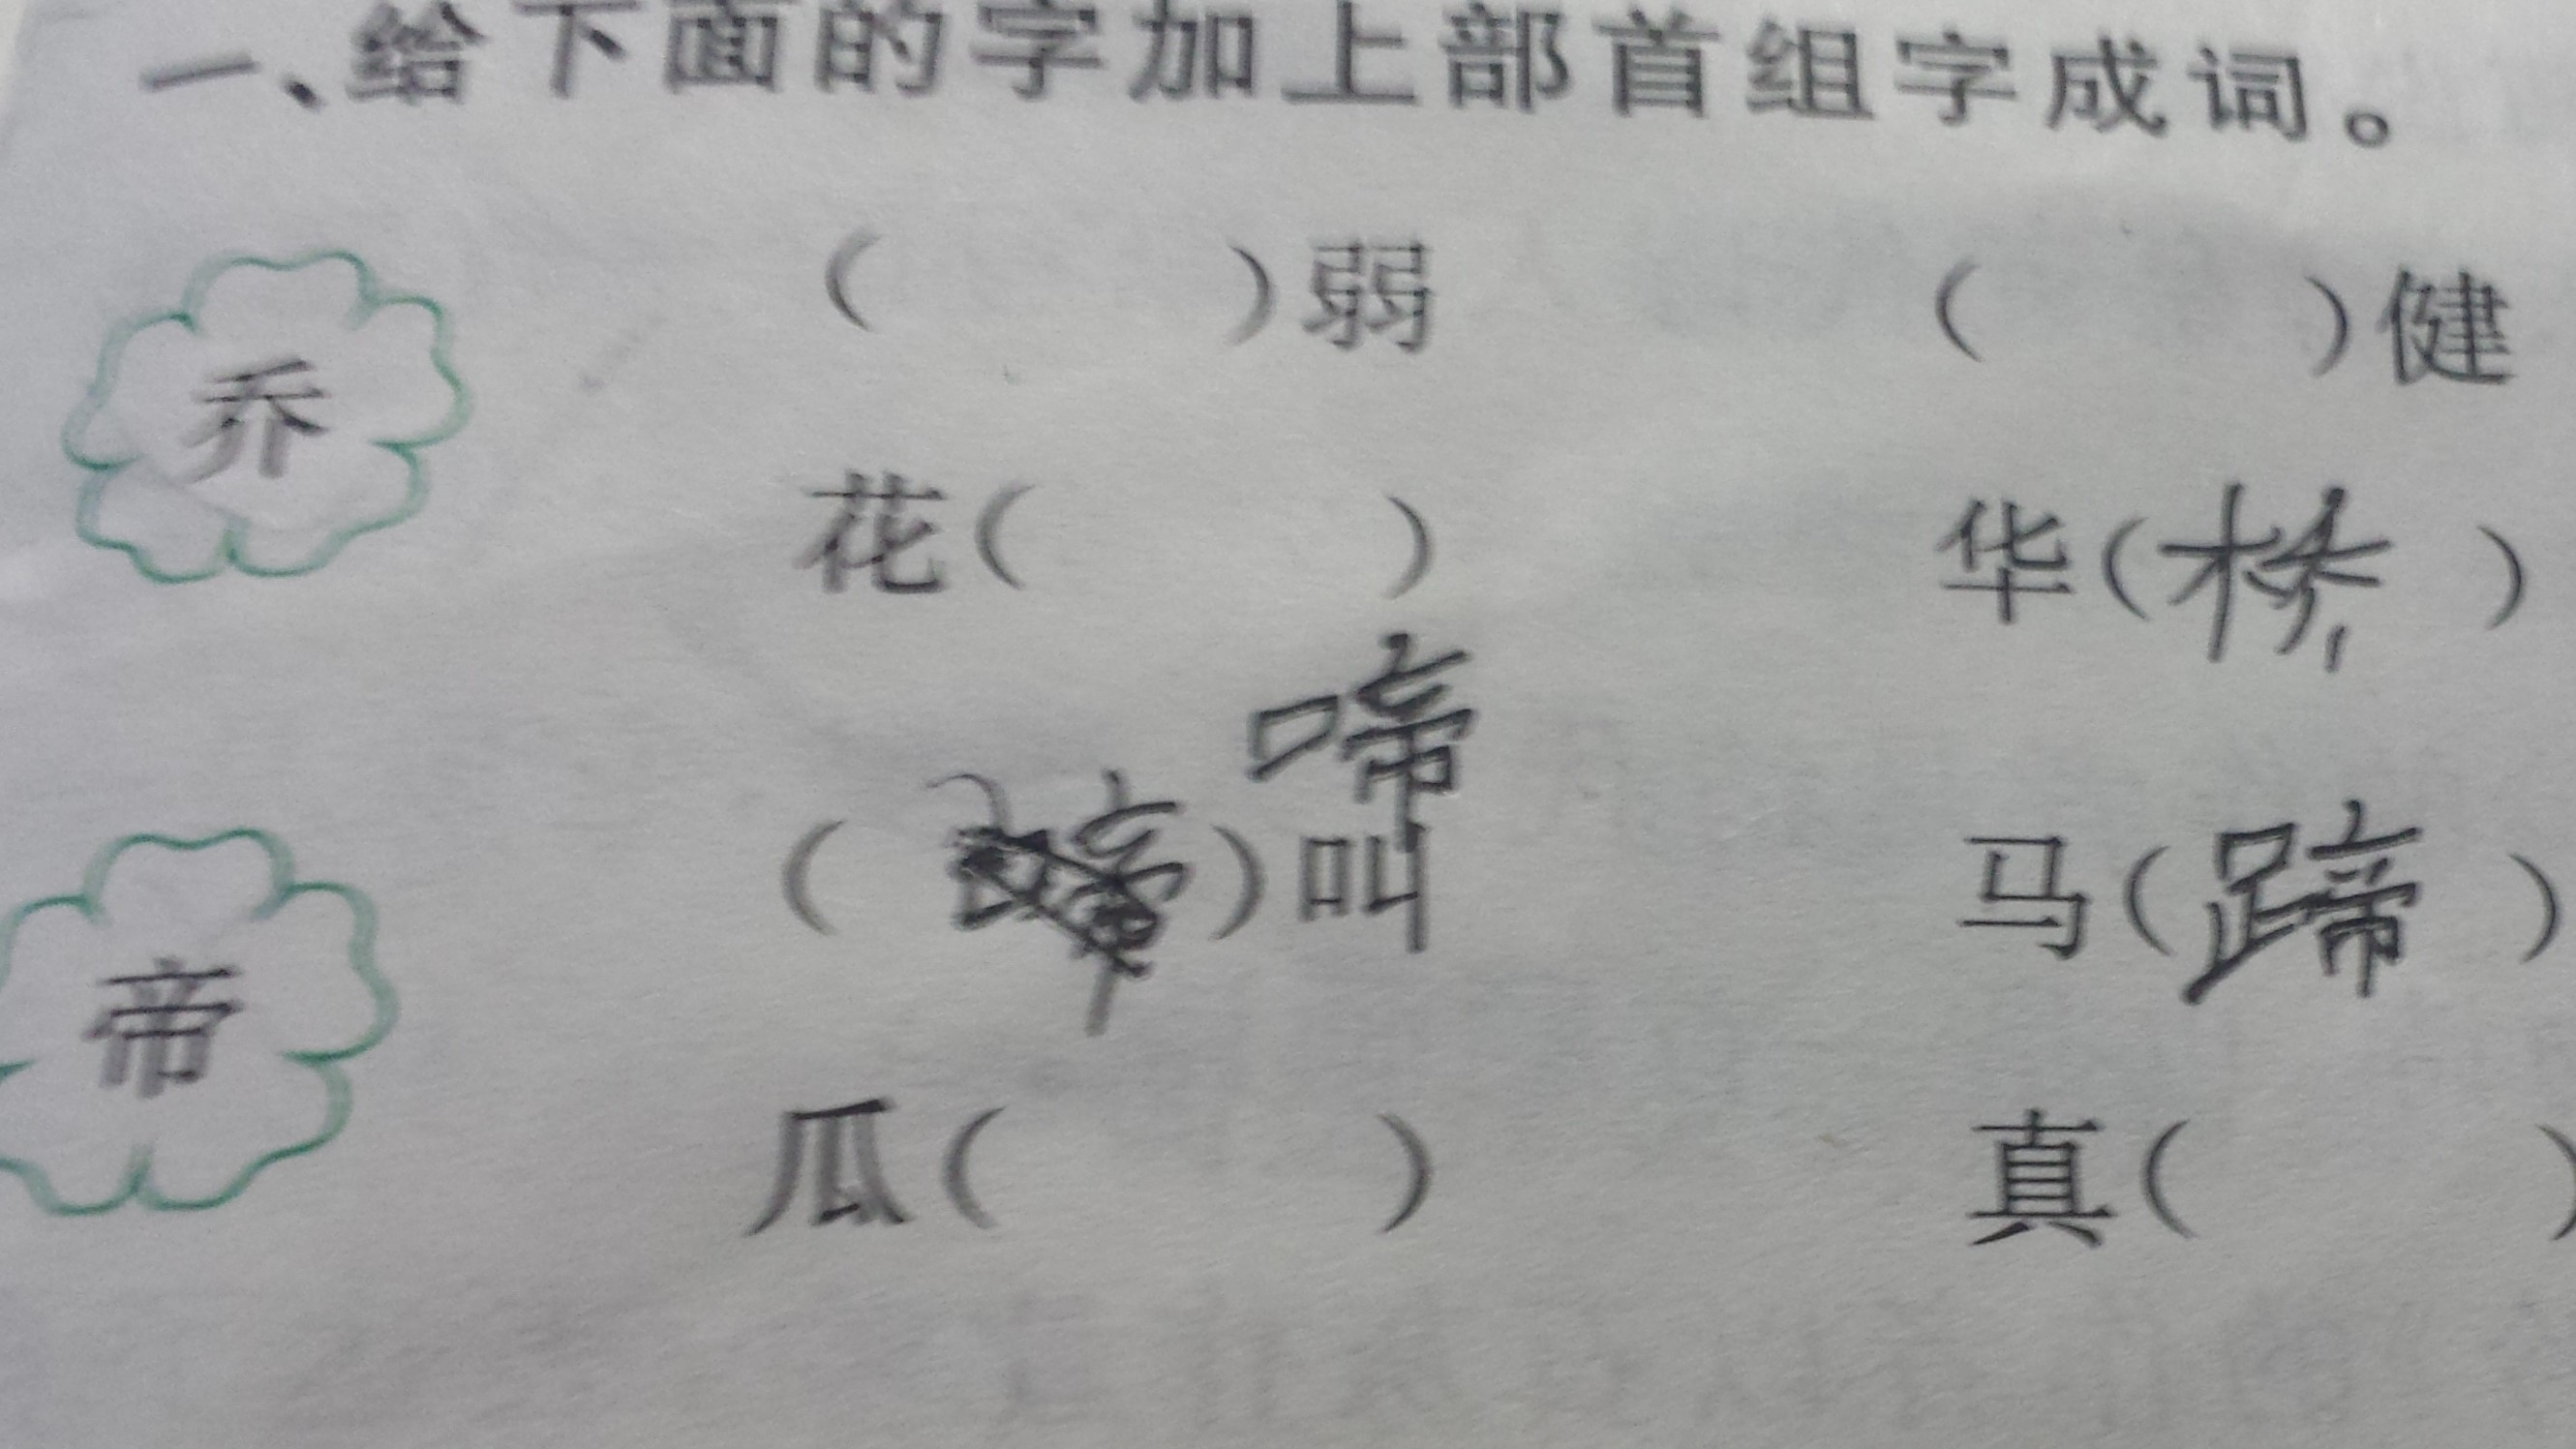 一、给下面的字加上部首组字成词。
乔 ( )弱 ( )健
花( ) 华(桥)
啼
帝 ( )叫 马(蹄)
瓜( ) 真( )